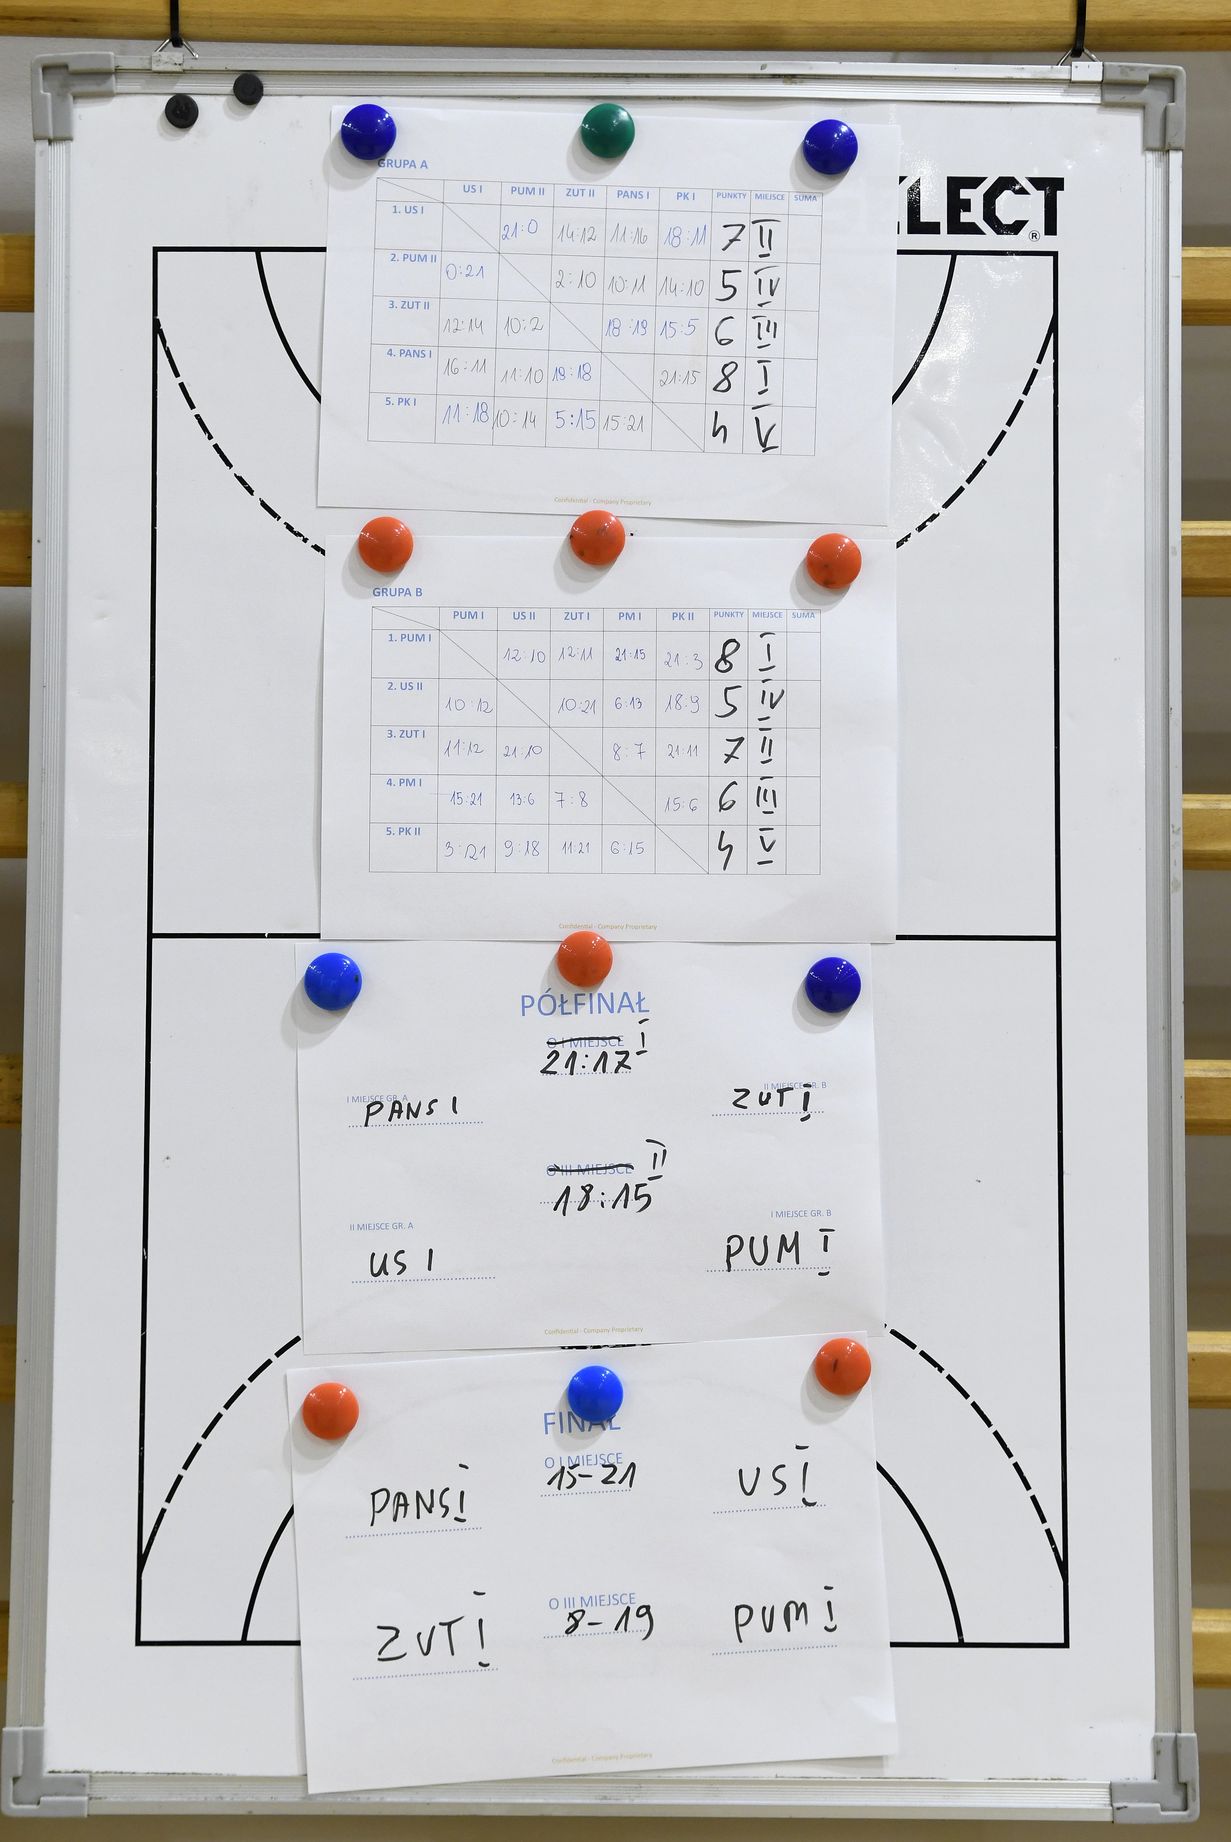 ELECT
®
GRUPA A
US I PUM II ZUT II PANS I PK I PUNKTY MIEJSCE SUMA
1. US I 21:0 14:12 11:16 18:11 7 II
2. PUM II 0:21 2:10 10:11 14:10 5 IV
3. ZUT II 12:14 10:2 18:19 15:5 6 III
4. PANS I 16:11 11:10 19:18 21:15 8 I
5. PK I 11:18 10:14 5:15 15:21 4 V
Confidential - Company Proprietary
GRUPA B
PUM I US II ZUT I PM I PK II PUNKTY MIEJSCE SUMA
1. PUM I 12:10 12:11 21:15 21:3 8 I
2. US II 10:12 10:21 6:13 18:9 5 IV
3. ZUT I 11:12 21:10 8:7 21:11 7 II
4. PM I 15:21 13:6 7:8 15:6 6 III
5. PK II 3:21 9:18 11:21 6:15 4 V
Confidential - Company Proprietary
PÓŁFINAŁ
O I MIEJSCE I
21:17
I MIEJSCE GR. A II MIEJSCE GR. B
PANS I ZUT I
O III MIEJSCE II
18:15
II MIEJSCE GR. A I MIEJSCE GR. B
US I PUM I
Confidential - Company Proprietary
FINAŁ
O I MIEJSCE
PANS I 15-21 US I
O III MIEJSCE
ZUT I 8-19 PUM I
Confidential - Company Proprietary